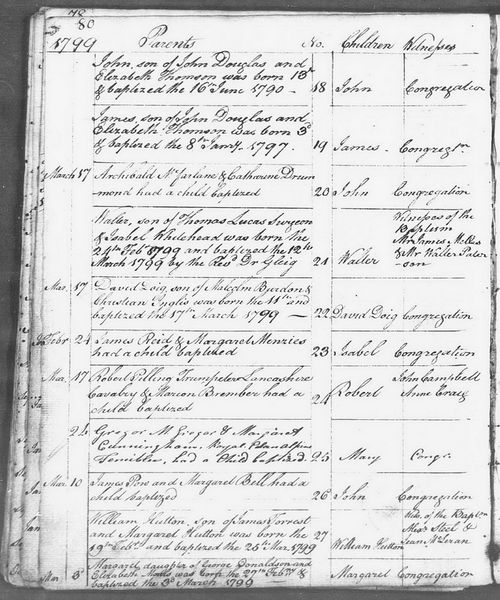 80
1799 Parents No. Children Witnesses
John, son of John Douglas and
Elizabeth Thomson was born 13th
& baptized the 16th June 1790 — 18 John Congregation
James, son of John Douglas and
Elizabeth Thomson was born 3d
& baptized the 8th Jany. 1797. 19 James Congregtn
March 17 Archibald McFarlane & Catherine Drum
mond had a child baptized 20 John Congregation
Walter, son of Thomas Lucas Surgeon
& Isabel Whitehead was born the
24th Feb 1799 and baptized the 12th
March 1799 by the Revd Dr Gleig 21 Walter
Witnesses of the
Baptism
Mr James Millis
& Mr Walter Pater
son
Mar. 17 David Doig, son of Malcolm Burdon &
Christian Inglis was born the 11th and
baptized the 17th March 1799 — 22 David Doig Congregation
Febr 21 James Reid & Margaret Menzies
had a child baptized 23 Isabel Congregation
Mar. 17 Robert Pilling Trumpeter Lancashire
Cavalry & Marion Brember had a
child baptized 24 Robert
John Campbell
Anne Craig
24 Gregor McGregor & Margaret
Cunningham Royal Clanalpine
Fencibles, had a Child baptized. 25 Mary Congr.
Mar. 10 James Pow and Margaret Bell had a
child baptized 26 John Congregation
William Hutton, son of James Forrest
and Margaret Hutton was born the
19th Febry and baptized the 26 Mar. 1799 27 William Hutton
Witn. of the Baptism
Steel &
Jean McLeran
Mar 3d Margaret, daughter of George Donaldson and
Elizabeth was born the 27th Febry &
baptized the 3d March 1799 Margaret Congregation